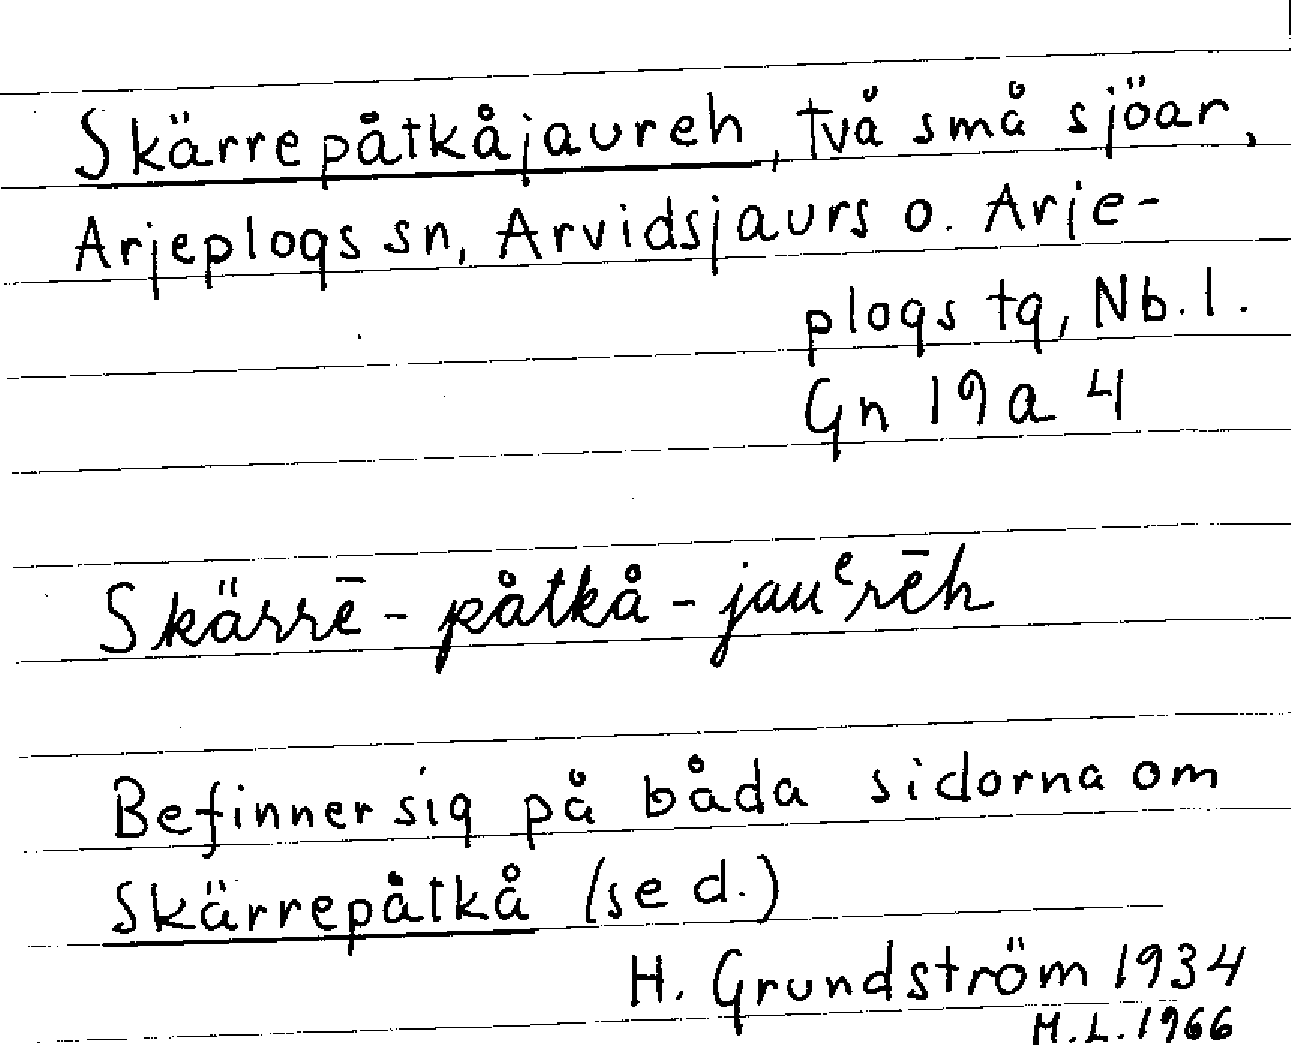 Skärrepåtkåjaureh, två små sjöar,
Arjeplogs sn, Arvidsjaurs o. Arje-
plogs tg, Nb. l.
Gn 19a 4
Skärrē - påtkå - jauᵉrēh
Befinner sig på båda sidorna om
Skärrepåtkå (se d.)
H. Grundström 1934
M.L. 1966